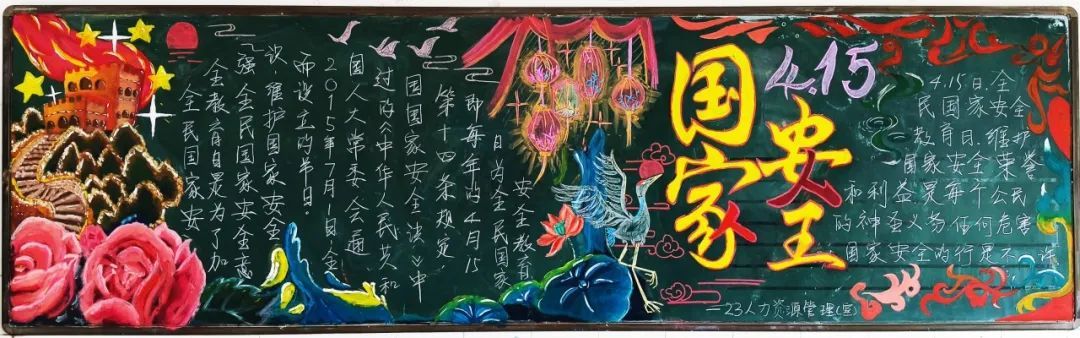 全民国家安
全教育日是为了加
强全民国家安全意
识,维护国家安全
而设立的节日。
2015年7月1日全
国人大常委会通
过的《中华人民共和
国国家安全法》中
第十四条规定
即每年的4月15
日为全民国家
安全教育
4.15
国家
安全
4.15日,全
民国家安全
教育日.维护
国家安全荣誉
和利益是每个公民
的神圣义务.任何危害
国家安全的行是不 许
—23人力资源管理